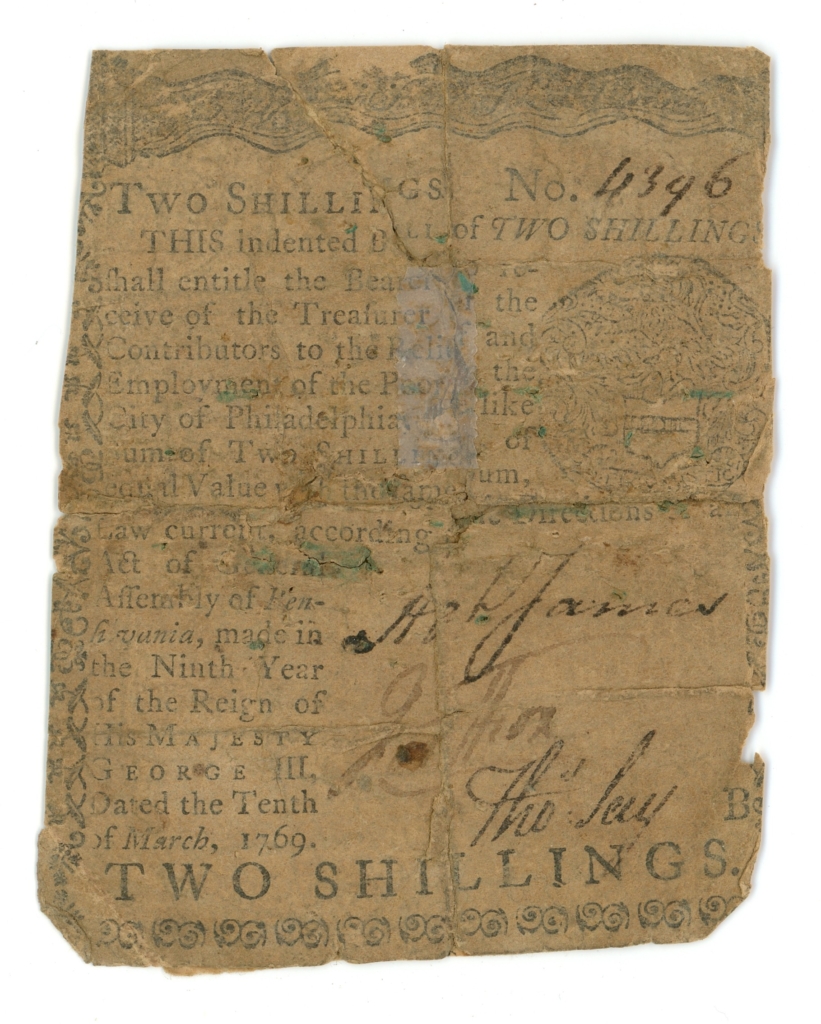 TWO SHILLINGS No. 4396
THIS indented BILL of TWO SHILLINGS
ſhall entitle the Bearer to re-
ceive of the Treaſurer the
Contributors to the Relief and
Employment of the Poor the
City of Philadelphia, like
Sum of TWO SHILLINGS of
equal Value the ſame um,
Law current, according Directions
Act of General
Aſſembly of Pen-
ſylvania, made in
the Ninth Year
of the Reign of
His MAJESTY
GEORGE III,
Dated the Tenth
of March, 1769.
James
Fox
Thos Say
B
TWO SHILLINGS.